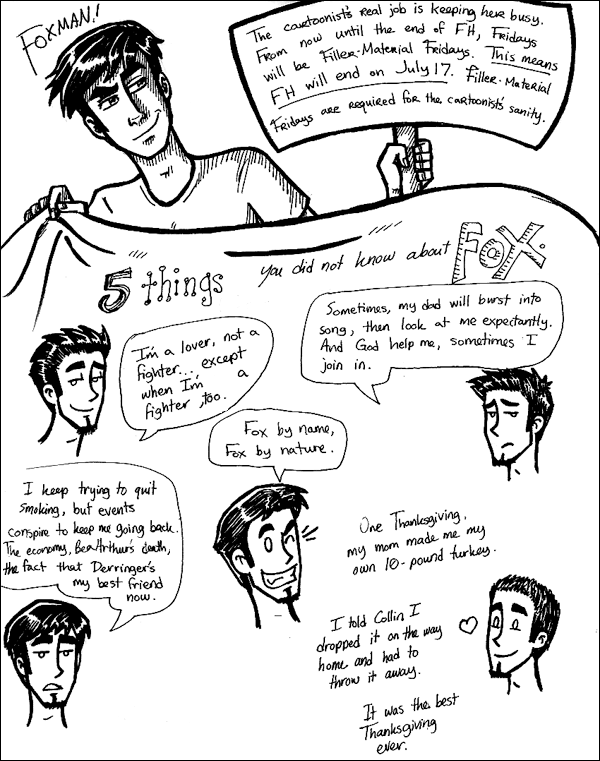 FOXMAN!
The cartoonist's real job is keeping her busy.
From now until the end of FH, Fridays
will be Filler-Material Fridays. This means
FH will end on July 17. Filler-Material
Fridays are required for the cartoonist's sanity.
5 things you did not know about FOX.
I'm a lover, not a
fighter... except
when I'm a
fighter, too.
Sometimes, my dad will burst into
song, then look at me expectantly.
And God help me, sometimes I
join in.
Fox by name,
Fox by nature.
I keep trying to quit
smoking, but events
conspire to keep me going back.
The economy, Bea Arthur's death,
the fact that Derringer's
my best friend
now.
One Thanksgiving,
my mom made me my
own 10-pound turkey.
I told Collin I
dropped it on the way
home and had to
throw it away.
It was the best
Thanksgiving
ever.